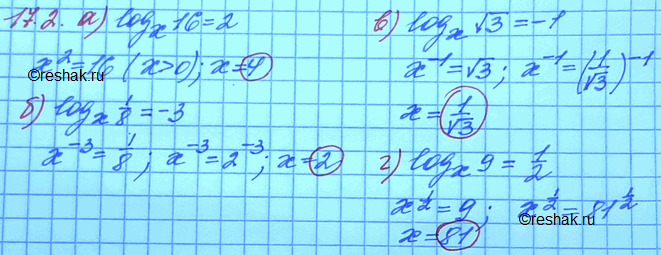 17.2. а) log_x 16 = 2
x² = 16 (x>0); x = 4
©reshak.ru
б) log_x 1/8 = -3
x⁻³ = 1/8; x⁻³ = 2⁻³; x = 2
в) log_x √3 = -1
x⁻¹ = √3; x⁻¹ = (1/√3)⁻¹
x = 1/√3
г) log_x 9 = 1/2
x^(1/2) = 9; x^(1/2) = 81^(1/2)
©reshak.ru
x = 81